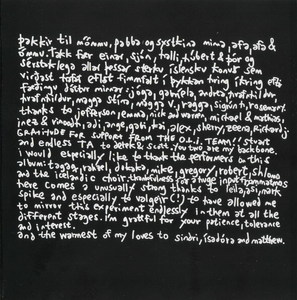 þakkir til mömmu, pabba og systkina minna, afa, afa &
ömmu. Takk fær einar, sjón, halli, hubert & þór og
sérstaklega allar þessar sterku íslensku konur sem
virðast efst fimmfalt í þykktum hring í kring eftir
fæðingu dóttur minnar: jóga, gabríela, andrea, hrafnhildur,
hrafnhildur, magga stína, magga v, ragga, sigrún & rosemary.
thanks to jefferson, emma, nick and warren, michael & mathias,
inez & vinoodh, adi, ange, gati, tai, alex, sherry, zeena, richard j.
GRATITUDE FOR SUPPORT FROM THE O.L.I. TEAM! / start
and endless TA to derek & scott. You two are my backbone.
i would especially like to thank the performers on this
album: tagaq, rahzel, dokaka, mike, gregory, robert, shlomo
and the icelandic choir. thankfulness for a huge input from matmos
here comes a unusually strong thanks to leila, asi, mark
spike and especially to valgeir (!) to have allowed me
to mirror this experiment endlessly in them at all the
different stages. i'm grateful for your patience, tolerance
and interest.
and the warmest of my loves to sindri, isadóra and matthew.